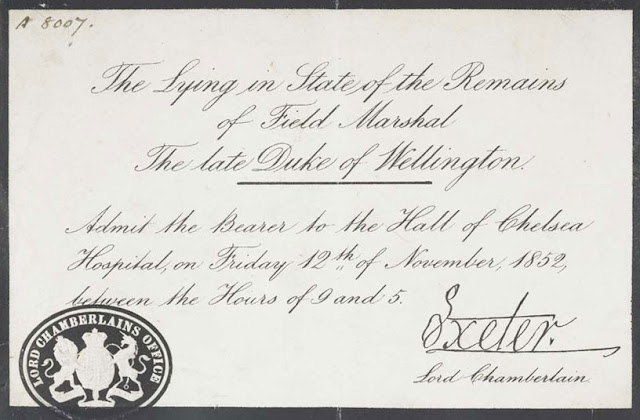 A 8007.
The Lying in State of the Remains
of Field Marshal
The late Duke of Wellington.
Admit the Bearer to the Hall of Chelsea
Hospital, on Friday 12th of November, 1852,
between the Hours of 9 and 5.
Exeter.
Lord Chamberlain.
LORD CHAMBERLAINS OFFICE